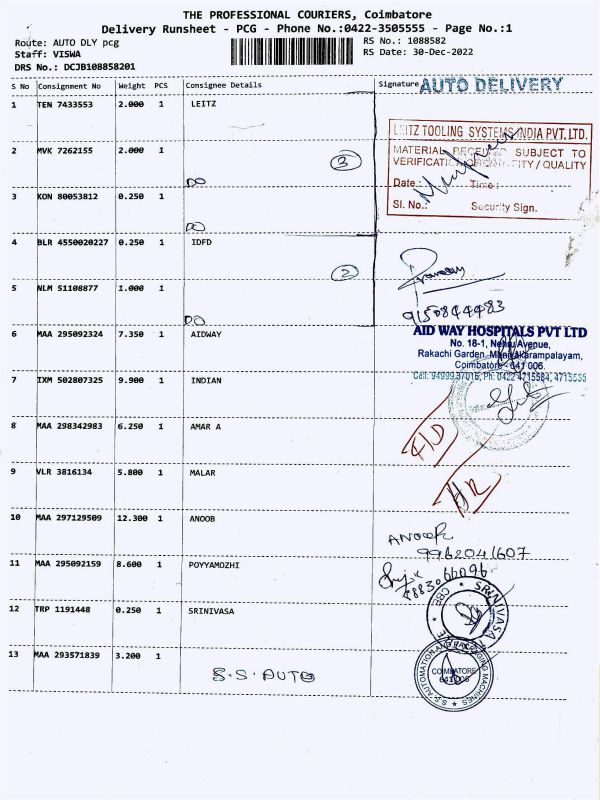 THE PROFESSIONAL COURIERS, Coimbatore
Delivery Runsheet - PCG - Phone No.:0422-3505555 - Page No.:1
Route: AUTO DLY pcg RS No.: 1088582
Staff: VISWA RS Date: 30-Dec-2022
DRS No.: DCJB108858201
S No Consignment No Weight PCS Consignee Details Signature AUTO DELIVERY
1 TEN 7433553 2.000 1 LEITZ
LEITZ TOOLING SYSTEMS INDIA PVT. LTD.
2 MVK 7262155 2.000 1 3
MATERIAL RECEIVED SUBJECT TO
VERIFICATION OF QUANTITY / QUALITY
DO
Date: Time:
3 KON 80053812 0.250 1
Sl. No.: Security Sign.
DO
4 BLR 4550020227 0.250 1 IDFD
2
5 NLM 51108877 1.000 1
9150844483
DO
6 MAA 295092324 7.350 1 AIDWAY
AID WAY HOSPITALS PVT LTD
No. 18-1, Nehru Avenue,
Rakachi Garden, Maniyakarampalayam,
Coimbatore - 641 006.
7 IXM 502807325 9.900 1 INDIAN
8 MAA 298342983 6.250 1 AMAR A
9 VLR 3816134 5.800 1 MALAR
10 MAA 297129509 12.300 1 ANOOB
ANOOB
9962041607
11 MAA 295092159 8.600 1 POYYAMOZHI
12 TRP 1191448 0.250 1 SRINIVASA
SRINIVASA
CBE
13 MAA 293571839 3.200 1
S.S AUTO
S.S. AUTOMATION AND PACKAGING MACHINES
COIMBATORE
641 006